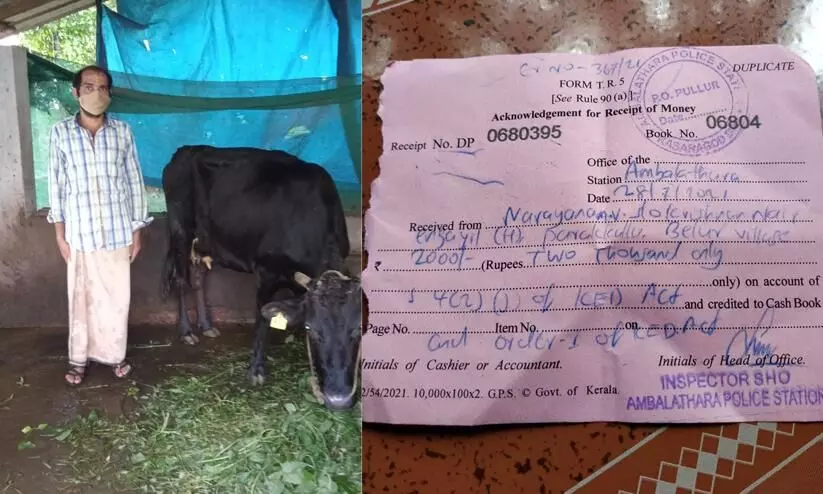 Cr No- 367/21
DUPLICATE
AMBALATHARA POLICE STATION
P.O. PULLUR
Date
KASARAGOD
FORM T. R. 5
[See Rule 90 (a)]
Acknowledgement for Receipt of Money
Receipt No. DP 0680395
Book No. 06804
Office of the
Station Ambalathara
Date 28/7/2021
Received from Narayanan
Belur village
₹ 2000/- (Rupees Two Thousand only
only) on account of
4(2) () of KED Act and credited to Cash Book
Page No. Item No. on
and order of KED Act
Initials of Cashier or Accountant. Initials of Head of Office.
2/54/2021. 10,000x100x2. G.P.S. © Govt. of Kerala.
INSPECTOR SHO
AMBALATHARA POLICE STATION